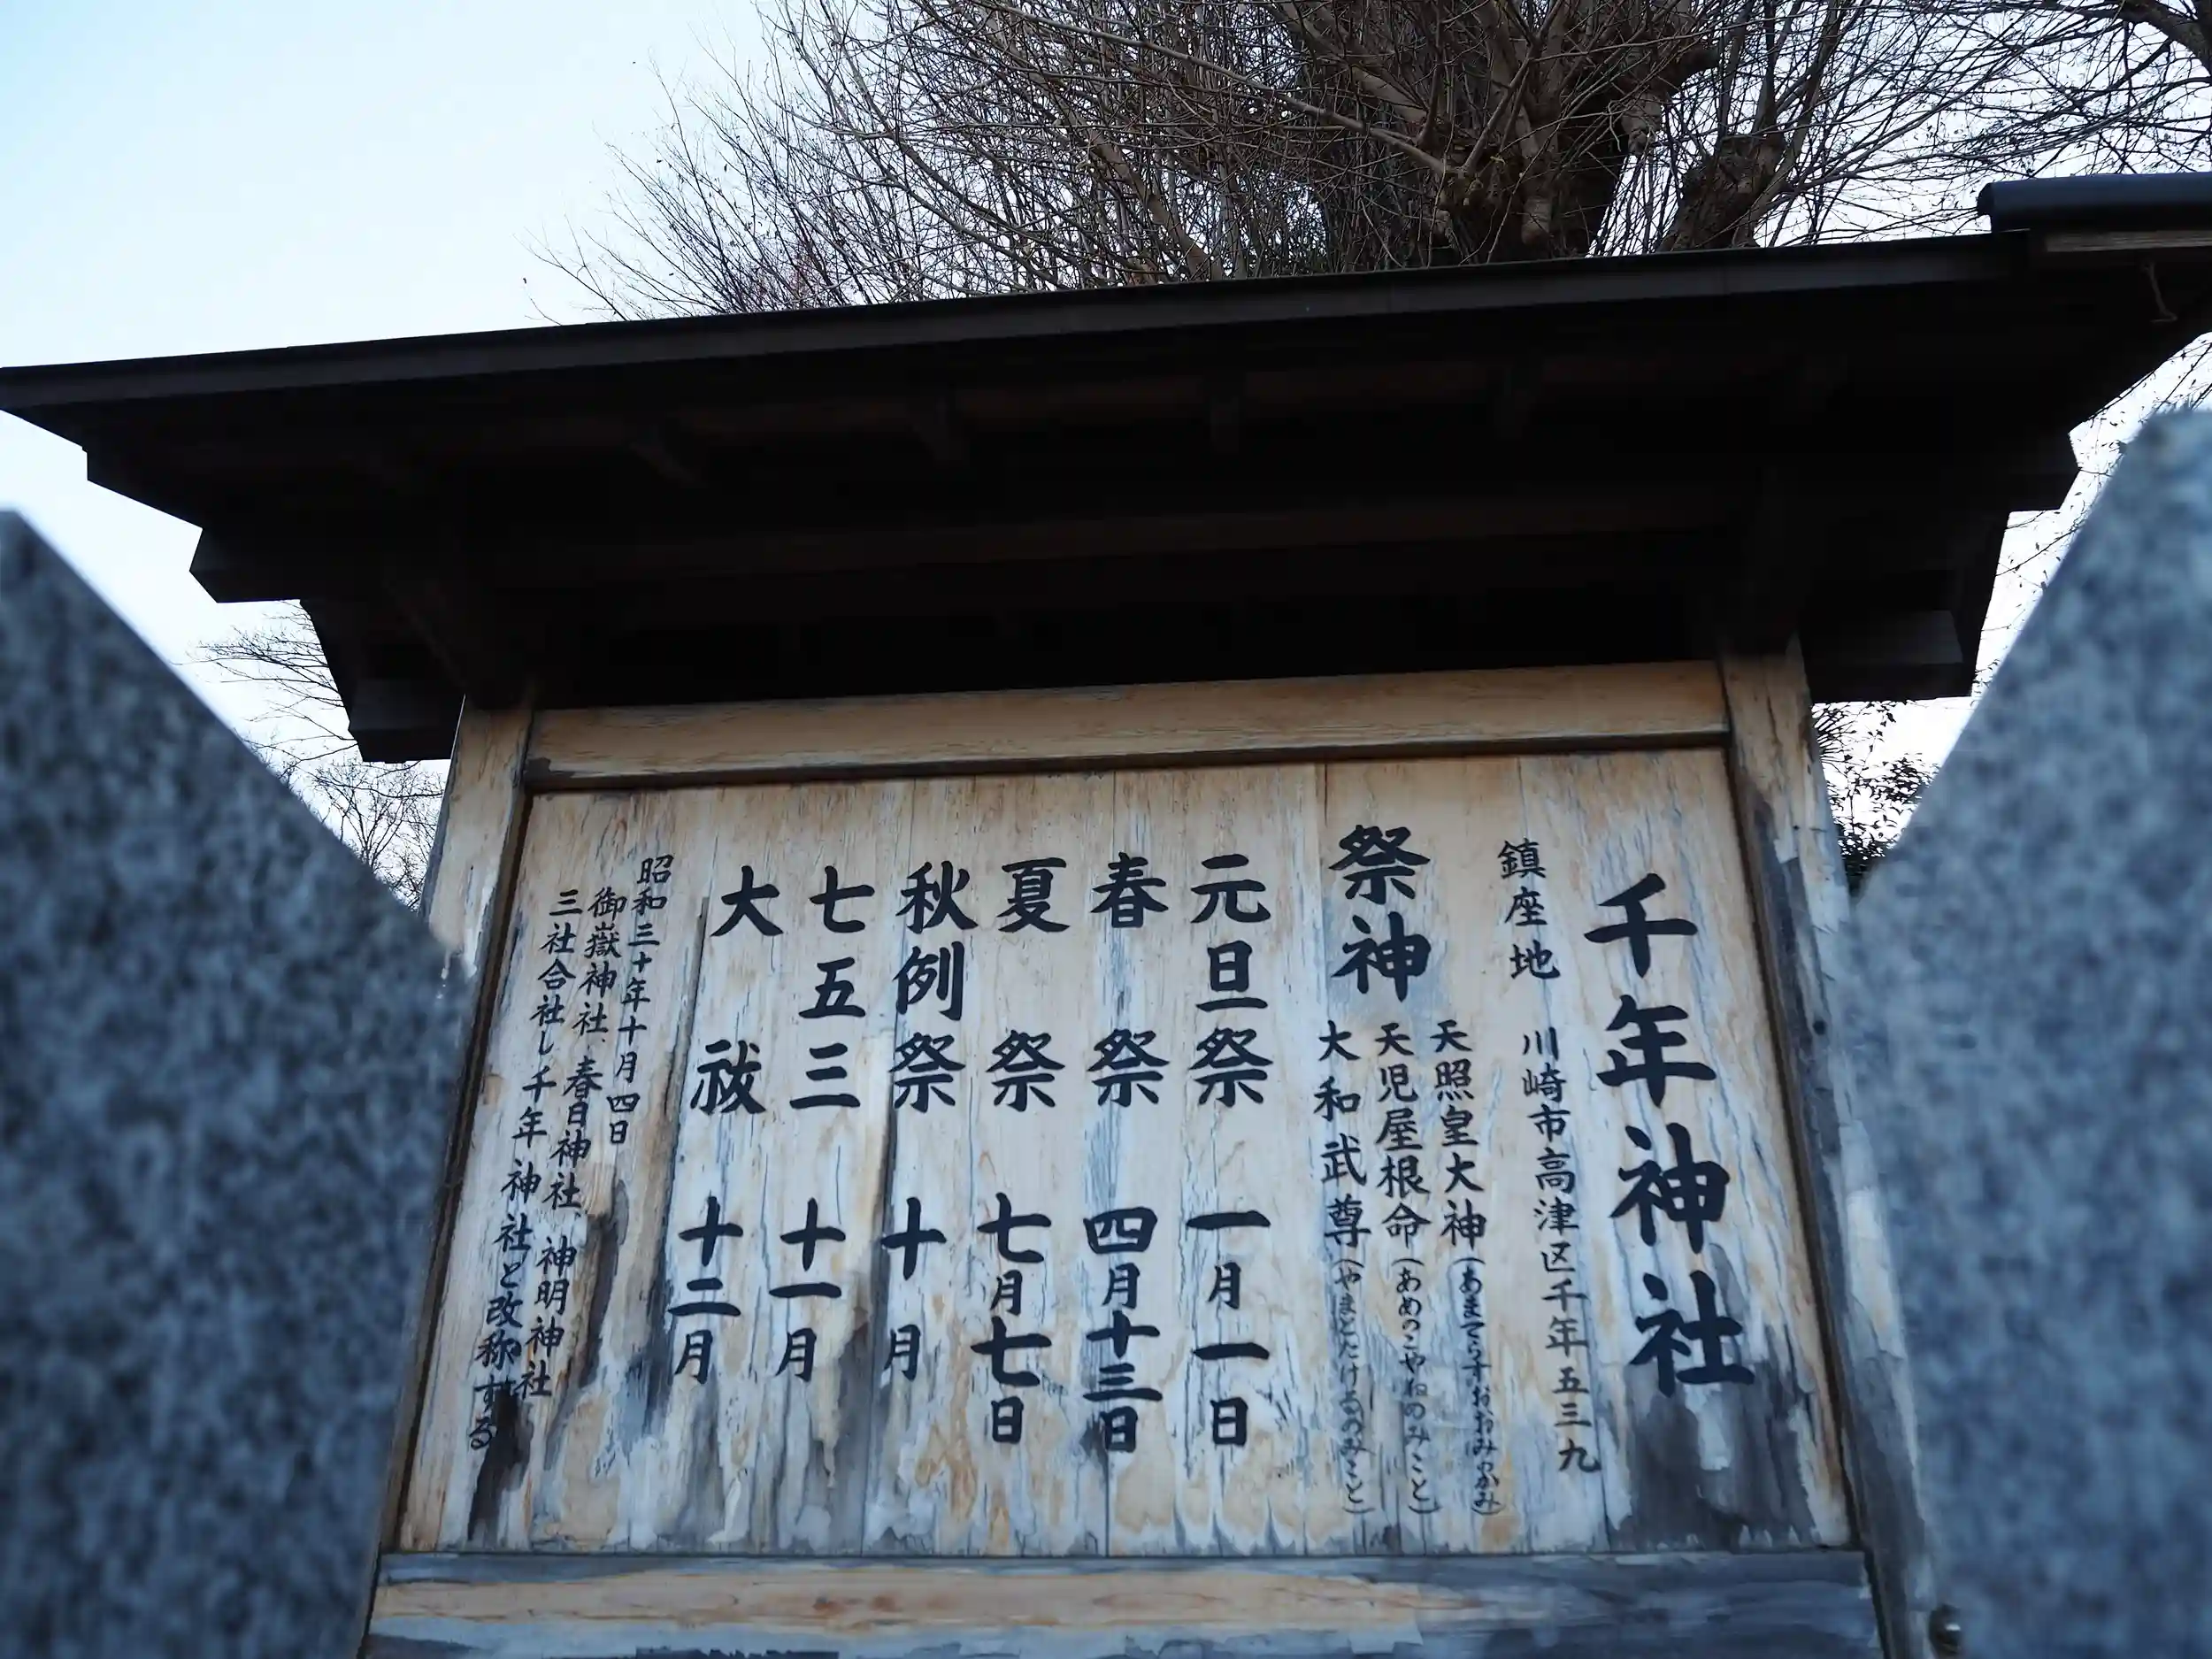 千年神社
鎮座地 川崎市高津区千年五三九
祭神
天照皇大神(あまてらすおおみかみ)
天児屋根命(あめのこやねのみこと)
大和武尊(やまとたけるのみこと)
元旦祭 一月一日
春祭 四月十三日
夏祭 七月七日
秋例祭 十月
七五三 十一月
大祓 十二月
昭和三十年十月四日
御嶽神社、春日神社、神明神社
三社合社し千年神社と改称する